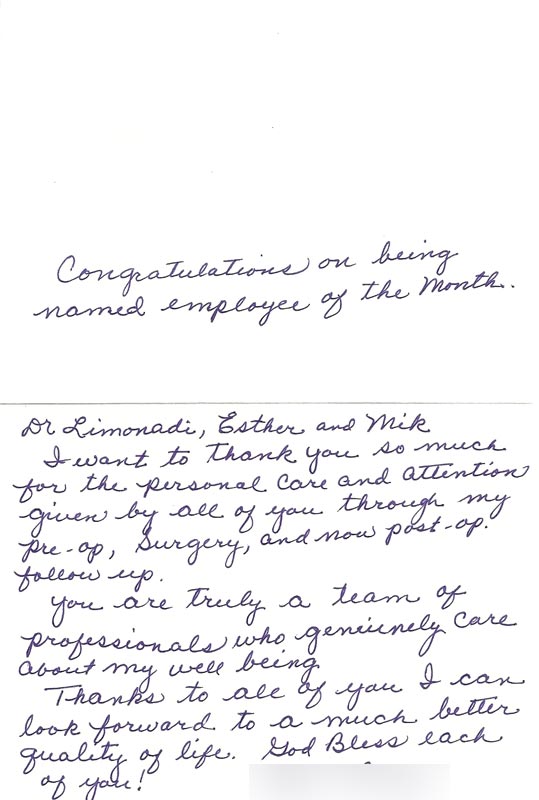 Congratulations on being
named employee of the Month.
Dr Limonadi, Esther and Mik
I want to thank you so much
for the personal care and attention
given by all of you through my
pre-op, surgery, and now post-op.
follow up.
you are truly a team of
professionals who geniunely care
about my well being.
Thanks to all of you I can
look forward to a much better
quality of life. God Bless each
of you!